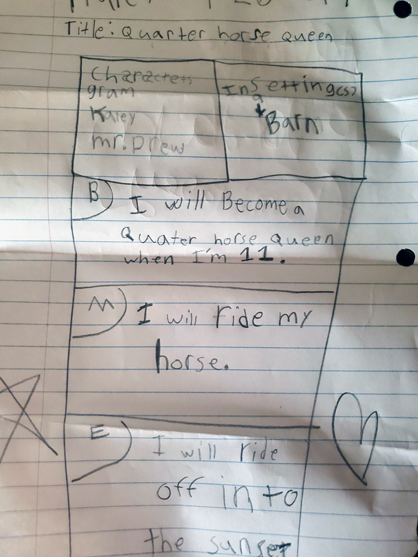 Title: Quarter horse queen
Characters
gram
Kaley
mr. Drew
Insetting(s)
a
Barn
B
I will Become a
Quater horse queen
when I'm 11.
M
I will ride my
horse.
E
I will ride
off in to
the sunset